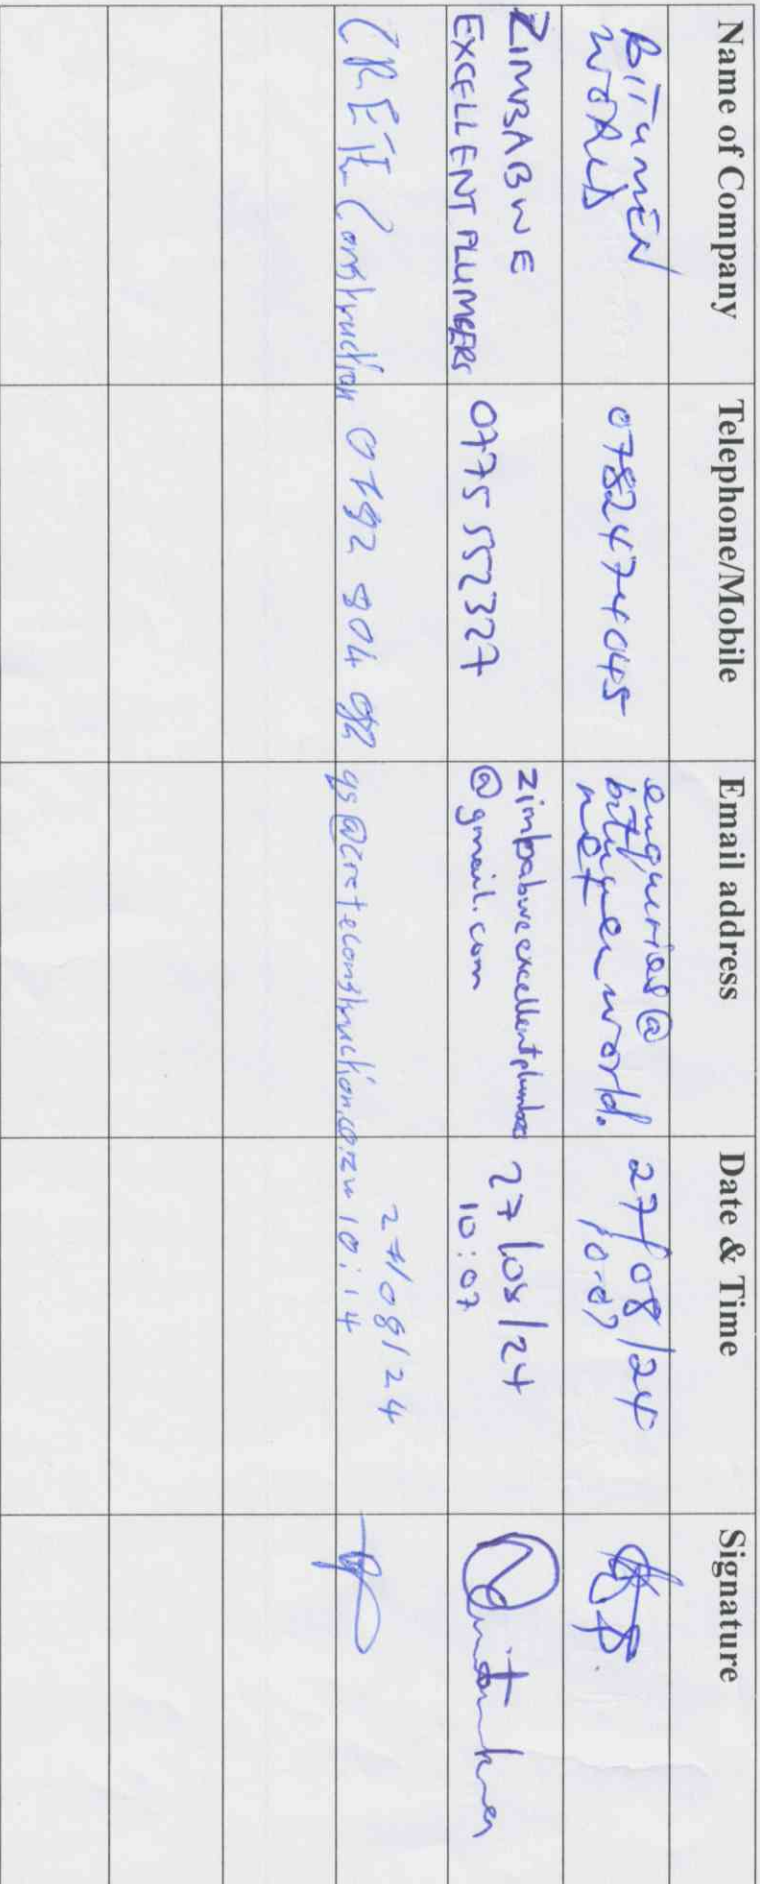 Name of Company Telephone/Mobile Email address Date & Time Signature
BITUMEN
WORLD
0782474045
enquiries@
bitumenworld.
net
27/08/24
10:07
ZIMBABWE
EXCELLENT PLUMBERS
0775 552327
zimbabweexcellentplumbers
@gmail.com
27/08/24
10:07
CRETE Construction
qs@creteconstruction.co.zw
27/08/24
10:14